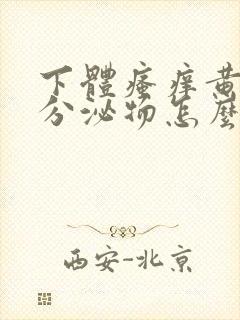 下體瘙痒黄
分泌物怎麼
西安-北京